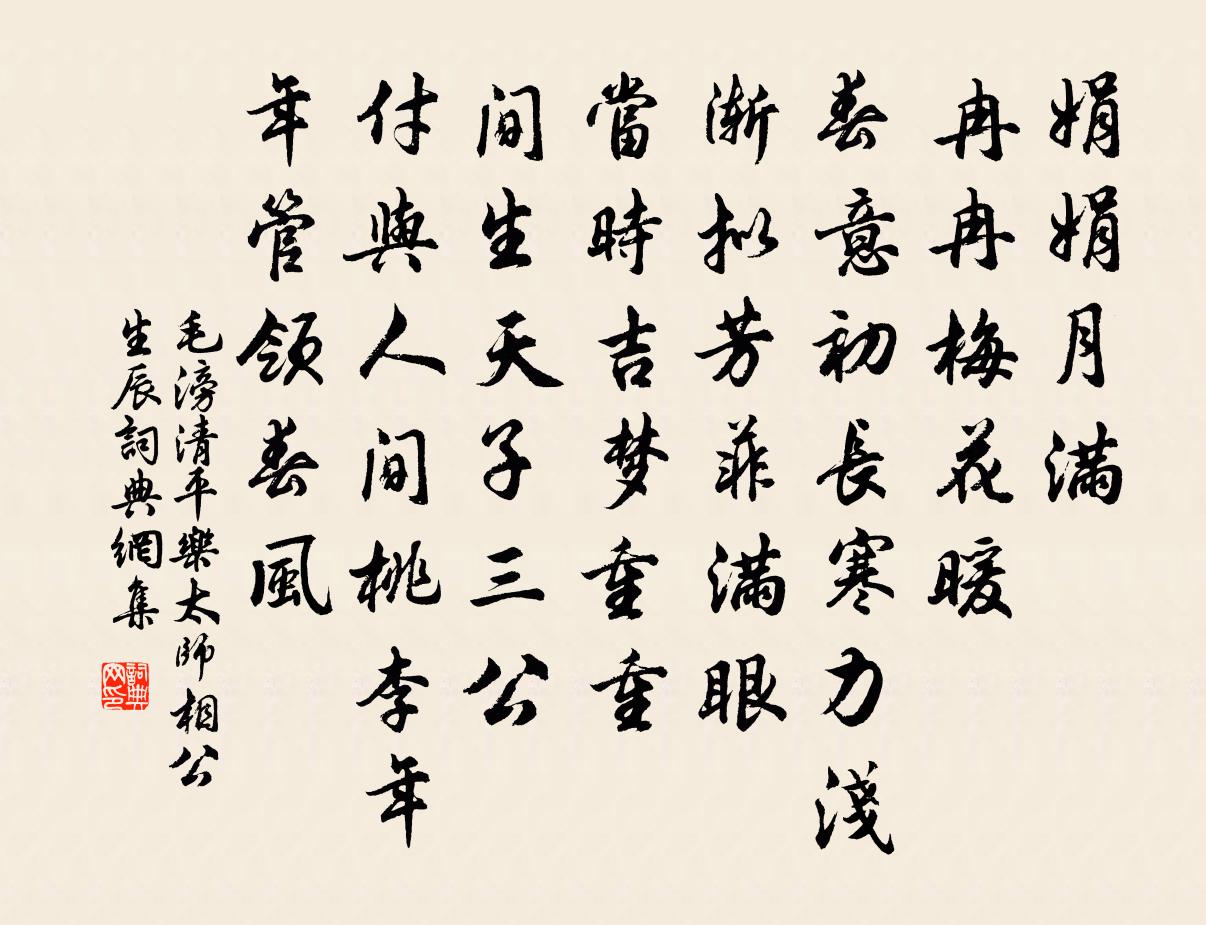 娟娟月滿
冉冉梅花暖
春意初長寒力淺
漸拟芳菲滿眼
當時吉梦重重
間生天子三公
付與人间桃李年
年管領春風
毛滂清平樂太師相公
生辰詞典網集
詞典網印